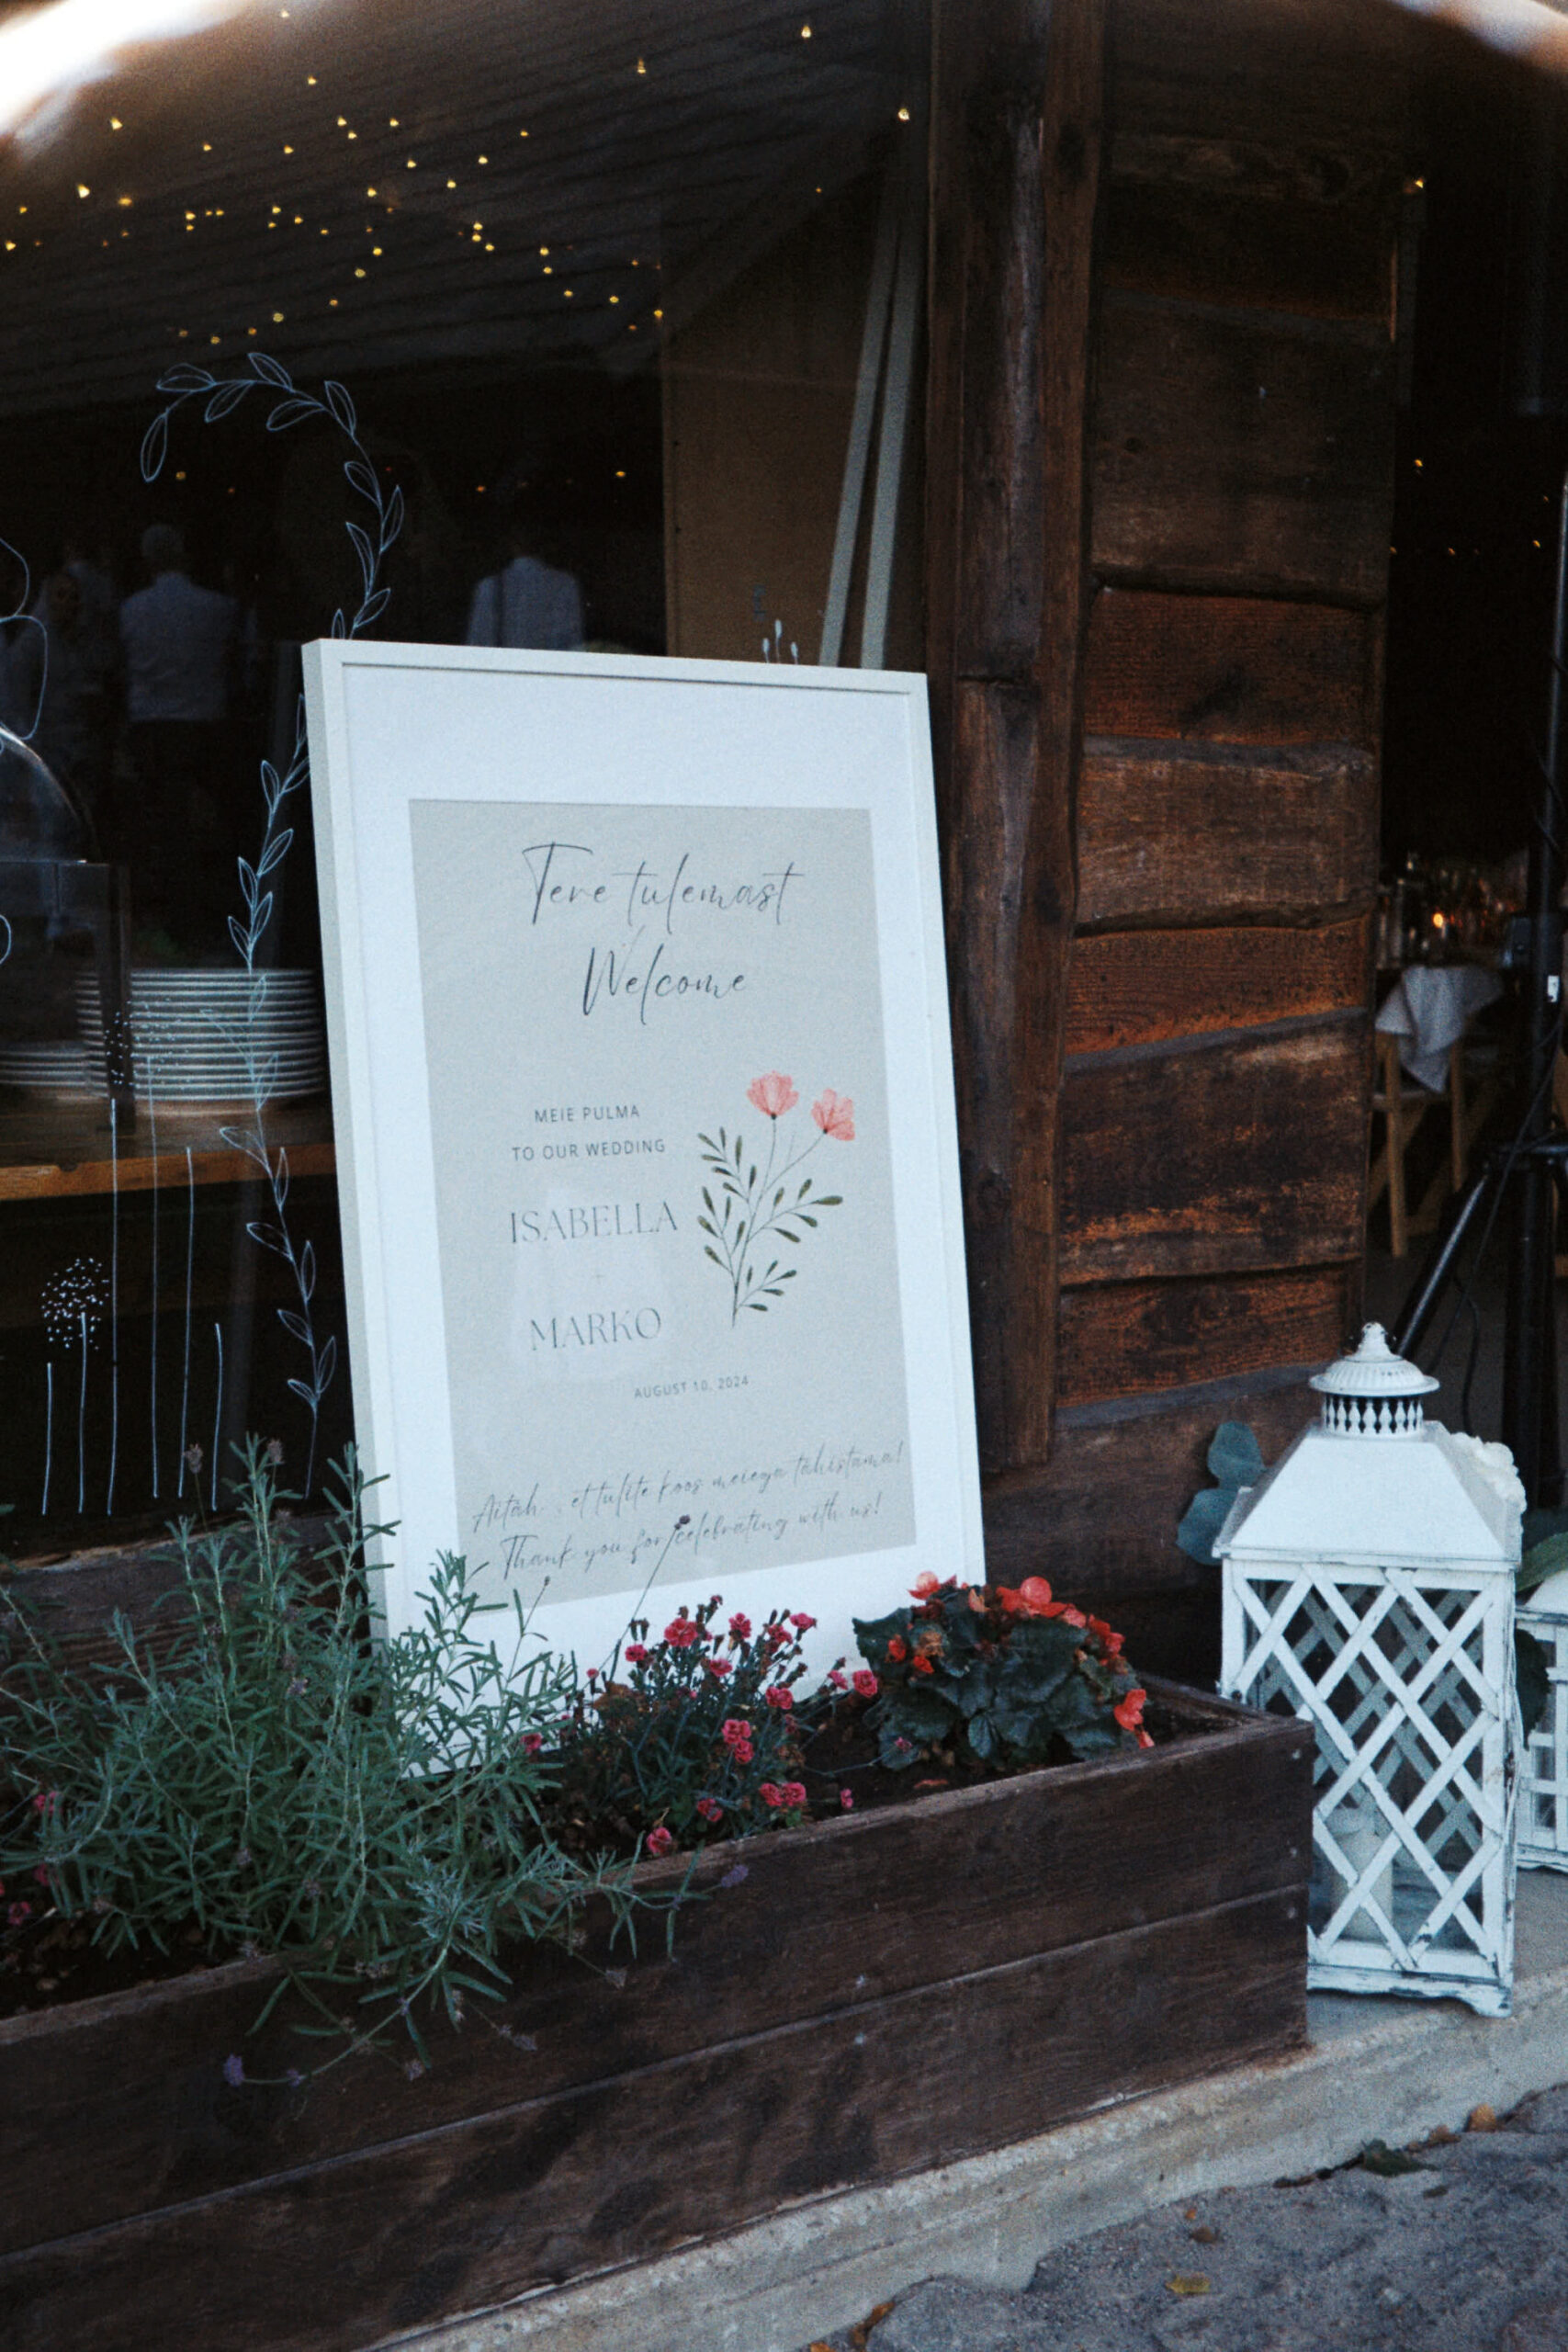 Tere tulemast
Welcome
MEIE PULMA
TO OUR WEDDING
ISABELLA
+
MARKO
AUGUST 10, 2024
Aitäh, et tulite koos meiega tähistama!
Thank you for celebrating with us!